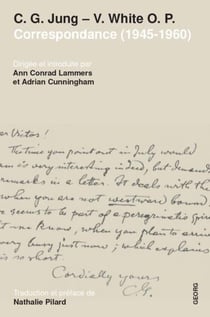 C. G. Jung – V. White O. P.
Correspondance (1945-1960)
Dirigée et introduite par
Ann Conrad Lammers
et Adrian Cunningham
ear Victor!
The time you point out in July would
is very interesting indeed, but demands
remarks in a letter. It deals with the
when you are not westward bound
seems to be part of a
me know, when you plan to arrive
very busy just now; which explains
is so short.
Cordially yours
C.G.
Traduction et préface de
Nathalie Pilard
GEORG